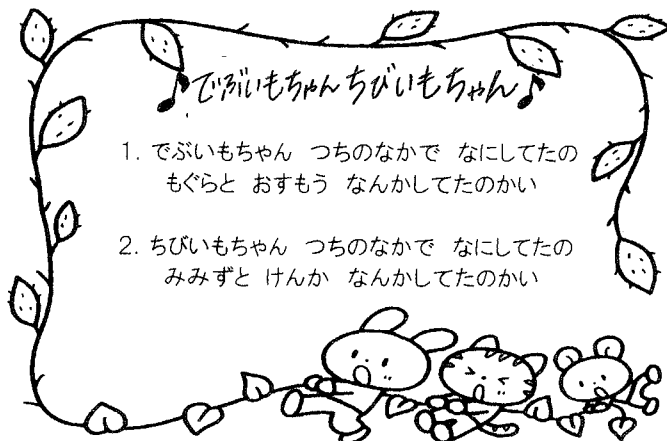 ♪でぶいもちゃんちびいもちゃん♪
1. でぶいもちゃん つちのなかで なにしてたの
もぐらと おすもう なんかしてたのかい
2. ちびいもちゃん つちのなかで なにしてたの
みみずと けんか なんかしてたのかい